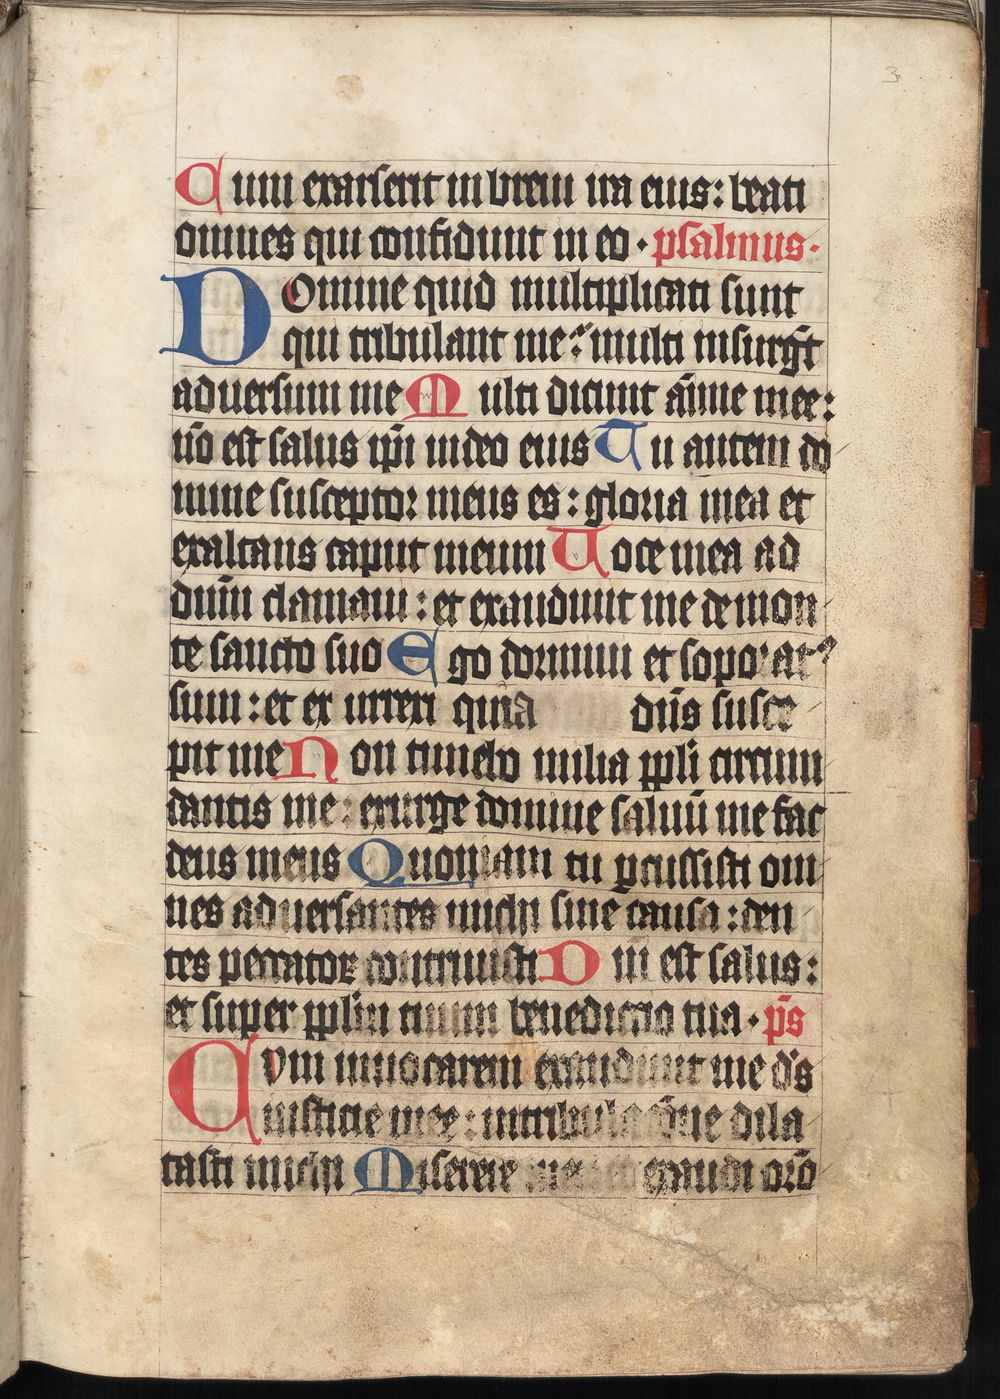 3
Cum exarserit in brevi ira eius: beati
omnes qui confidunt in eo · psalmus ·
Domine quid multiplicati sunt
qui tribulant me? multi insurgūt
adversum me Multi dicunt aīme mee:
nō est salus ipi in deo eius Tu autem do
mine susceptor meus es: gloria mea et
exaltans caput meum Voce mea ad
dnm̄ clamavi: et exaudivit me de mon
te sancto suo Ego dormivi et soporat᷒
sum: et ex urrexi quia dn̄s susce
pit me Non timebo milia ppl̄i circum
dantis me: exurge domine salvū me fac
deus meus Quoniam tu ꝑcussisti om
nes adversantes michi sine causa: den
tes peccator contrivisti Dni est salus:
et super ppl̄m tuum benedictio tua · p̄s
Cum invocarem exaudivit me d's
iusticie mee: in tribulacōne dila
tasti michi Miserere mei et exaudi orō